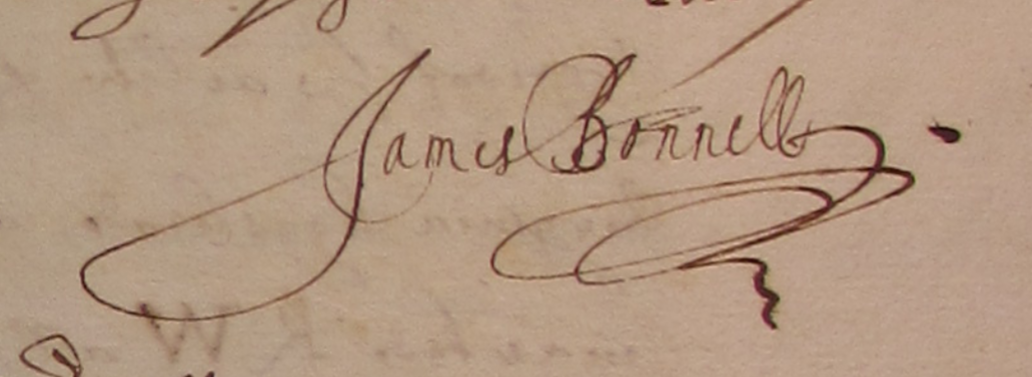 James Bonnell